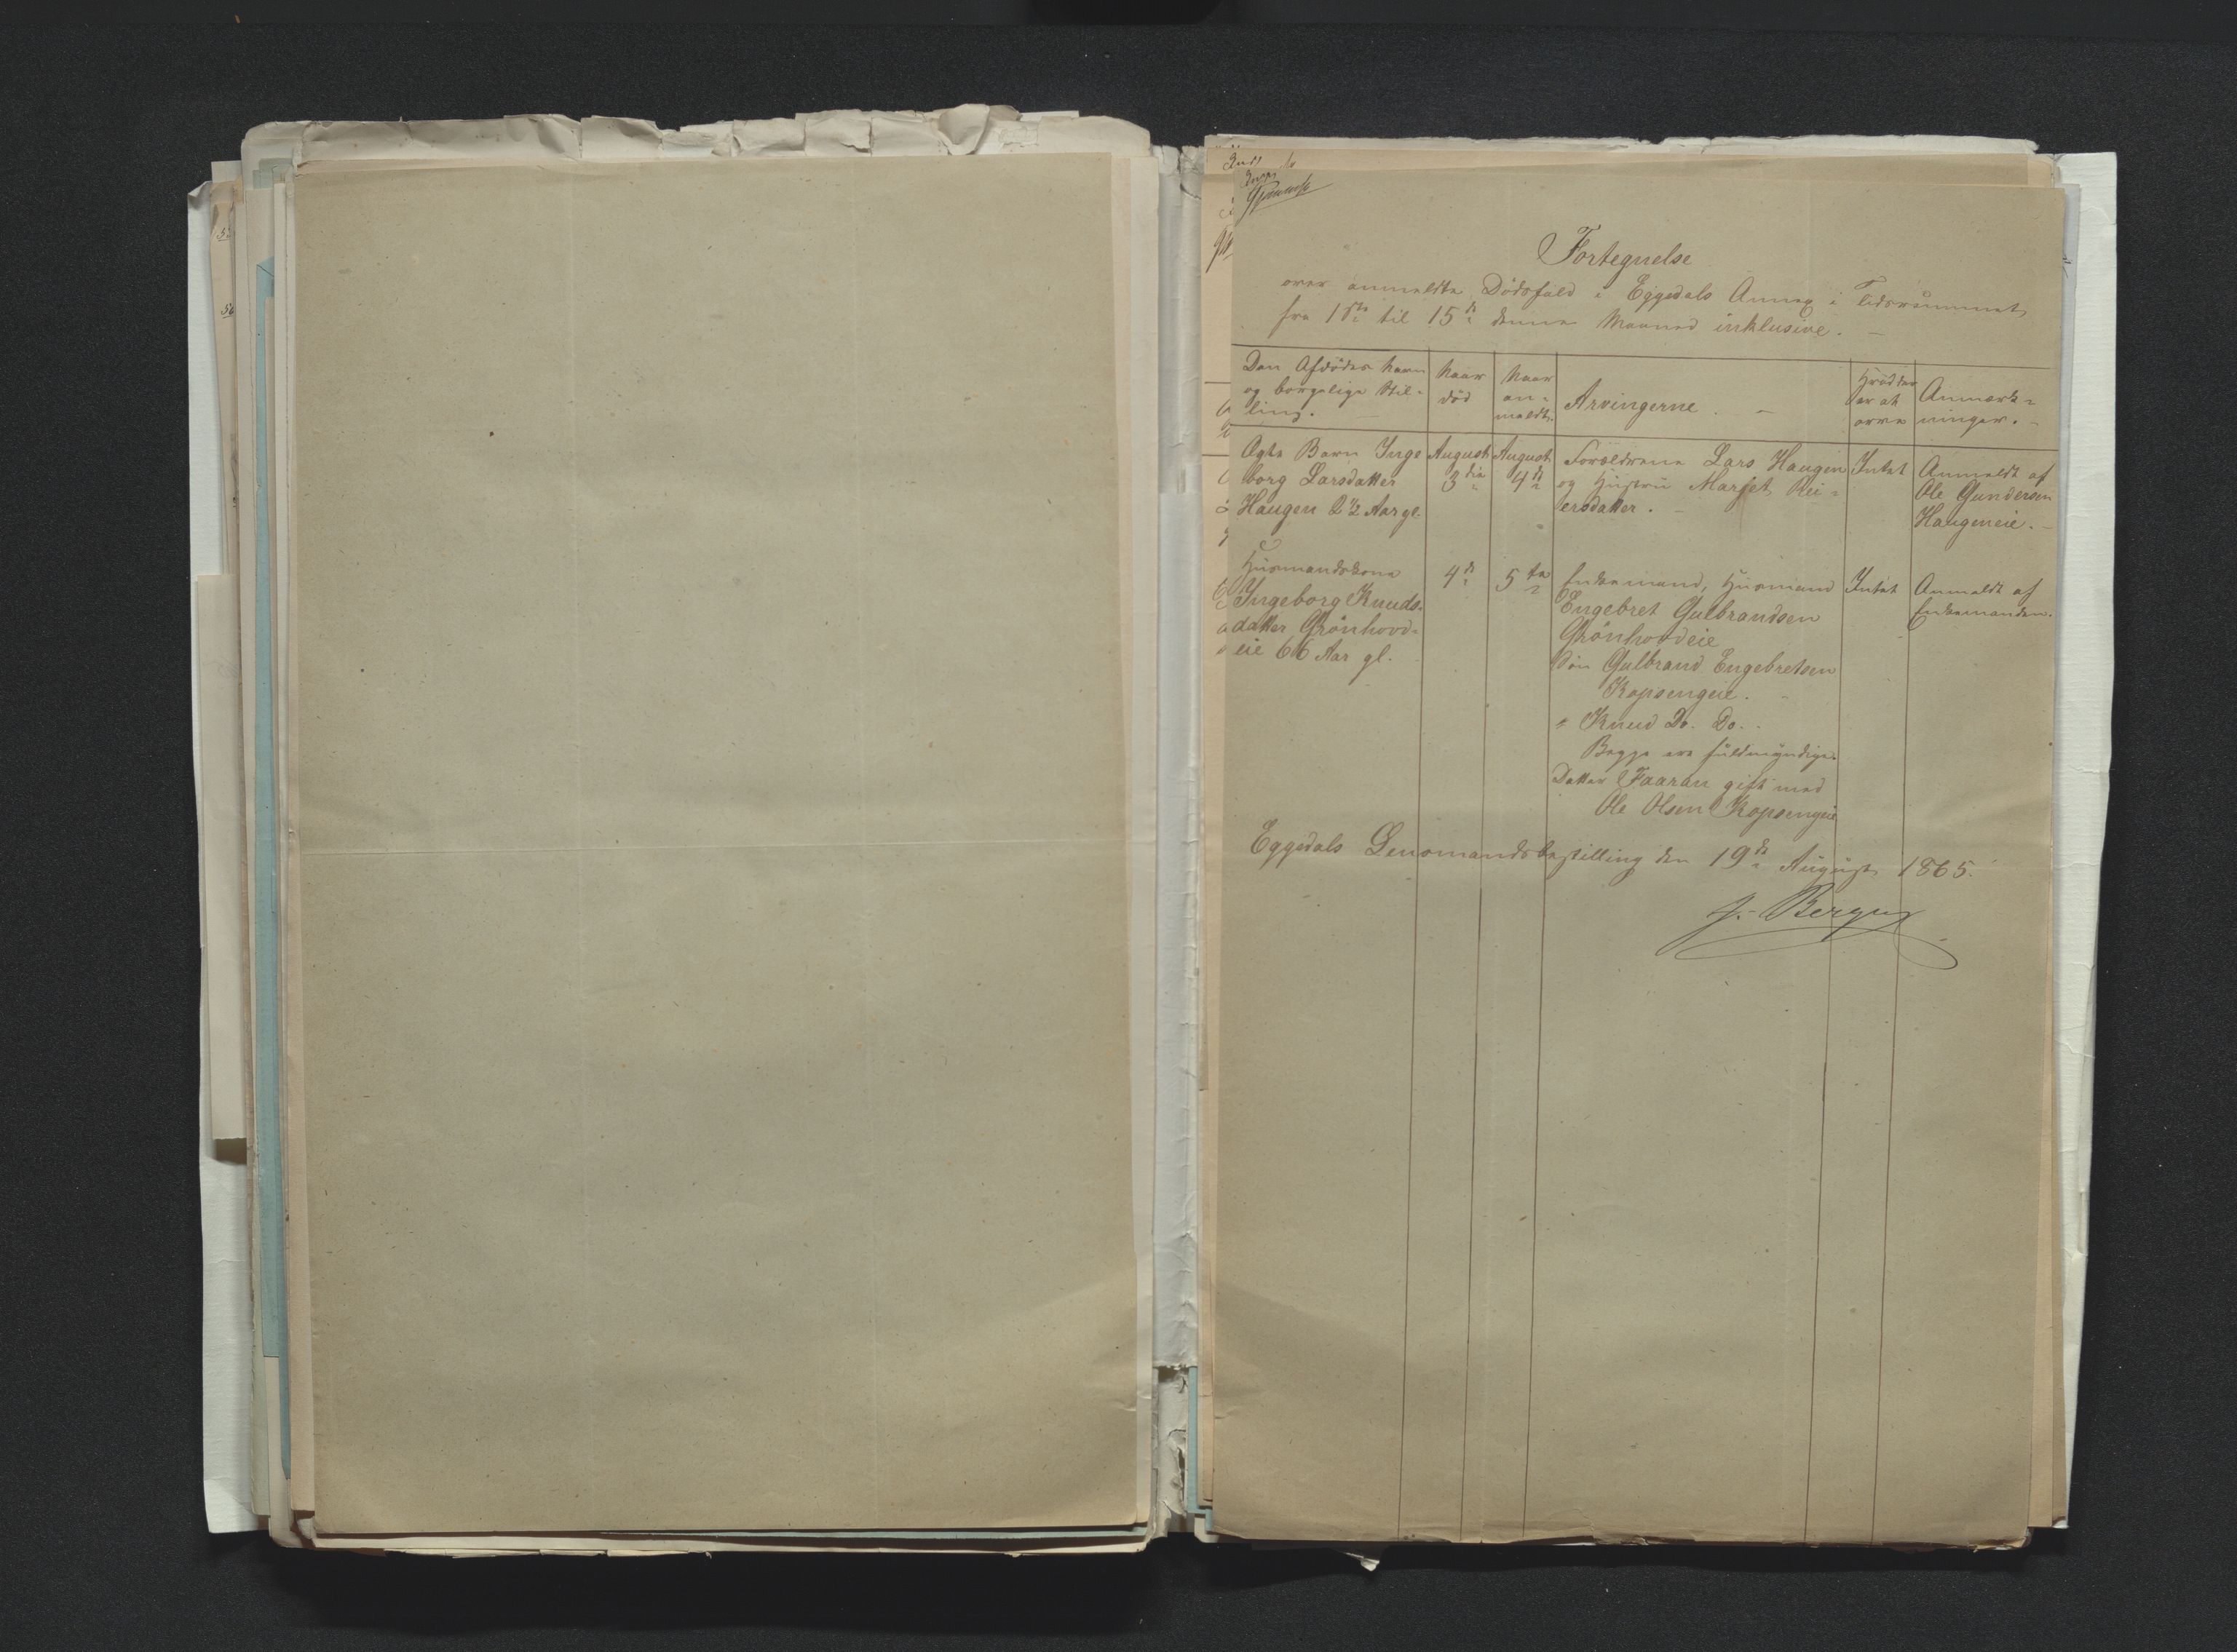 Fortegnelse
over anmeldte Dödsfald i Eggedals Annex i Tidsrummet
fra 1ste til 15de denne Maaned inklusive. —
Den Afdödes Navn
og borgelige Stil-
ling. —
Naar
död
Naar
an-
meldt.
Arvingerne. —
Hvad der
er at
arve
Anmærk-
ninger. —
Ægte Barn Inge
borg Larsdatter
Haugen 2 1/2 Aar gl.
August
3die
August
4de
Forældrene Lars Haugen
og Hustru Marjet Rei-
ersdatter. —
Intet
Anmeldt af
Ole Gundersen
Haugeneie. —
Husmandskone
Ingeborg Knuds-
datter Grönhovd-
eie 66 Aar gl.
4de
5te
Enkemand, Husmand
Engebret Gulbrandsen
Grönhovdeie
Sön Gulbrand Engebretsen
Kopsengeie.
" Knud Do. Do.
Begge ere fuldmyndige.
Datter Faaran gift med
Ole Olsen Kopsengeie
Intet
Anmeldt af
Enkemanden.
Eggedals Lensmandsbestilling den 19de August 1865.
J. Bergh